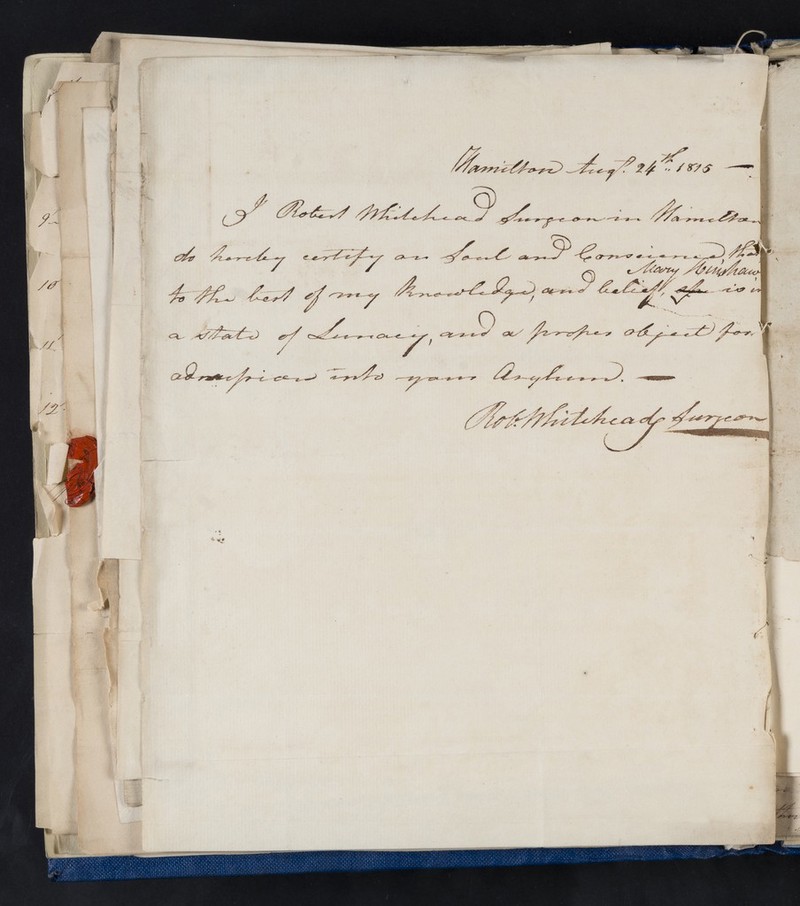 Hamilton Augt. 24th. 1815 —
I Robert Whitehead Surgeon in Hamilton
do hereby certify on Soul and Conscience, that
Mary
to the best of my Knowledge, and belief, is in
a state of Lunacy, and a proper object for
admission into your Asylum. —
Robt. Whitehead Surgeon
9
10
11
12